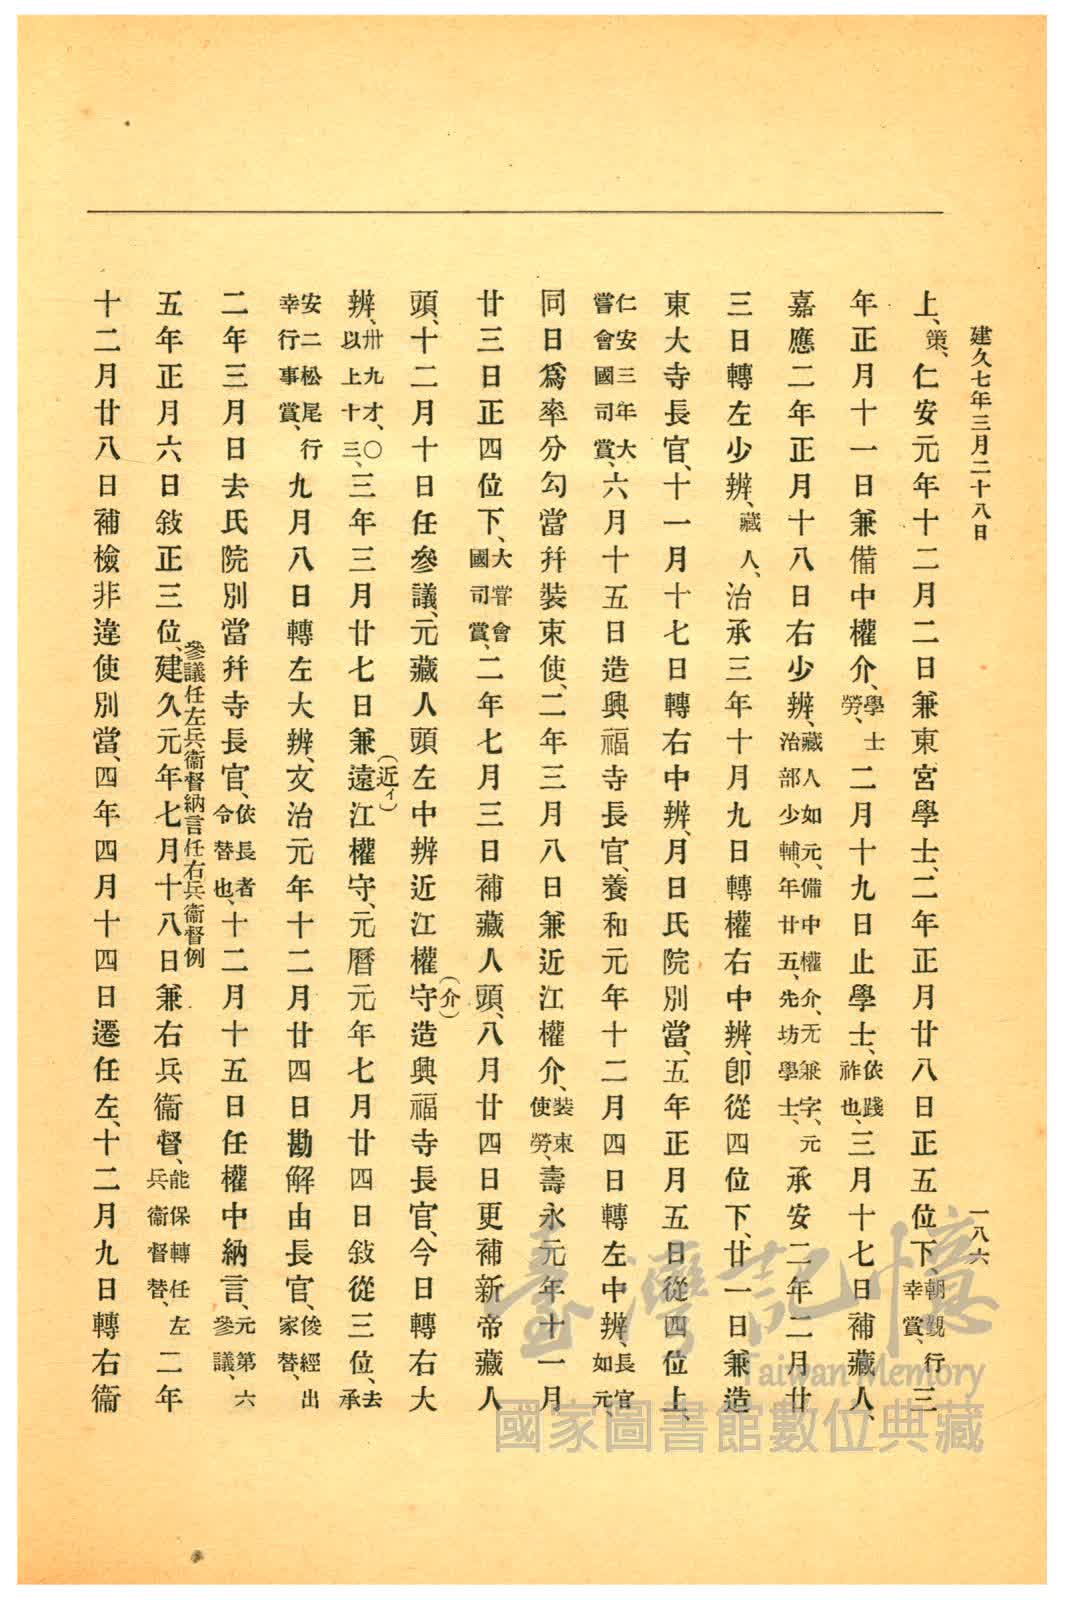 建久七年三月二十八日
一八六
上、策、仁安元年十二月二日兼東宮學士、二年正月廿八日正五位下、朝覲行幸賞、三
年正月十一日兼備中權介、學士勞、二月十九日止學士、依踐祚也、三月十七日補藏人、
嘉應二年正月十八日右少辨、藏人如元、備中權介、无兼字、元治部少輔、年廿五、先坊學士、承安二年二月廿
三日轉左少辨、藏人、治承三年十月九日轉權右中辨、卽從四位下、廿一日兼造
東大寺長官、十一月十七日轉右中辨、月日氏院別當、五年正月五日從四位上、
仁安三年大嘗會國司賞、六月十五日造興福寺長官、養和元年十二月四日轉左中辨、長官如元、
同日爲率分勾當幷裝束使、二年三月八日兼近江權介、裝束使勞、壽永元年十一月
廿三日正四位下、大嘗會國司賞、二年七月三日補藏人頭、八月廿四日更補新帝藏人
頭、十二月十日任參議、元藏人頭左中辨近江權守(介)造興福寺長官、今日轉右大
辨、卅九才、〇以上十三、三年三月廿七日兼遠(近イ)江權守、元曆元年七月廿四日敍從三位、去承
安二松尾行幸行事賞、九月八日轉左大辨、文治元年十二月廿四日勘解由長官、俊經出家替、
二年三月日去氏院別當幷寺長官、依長者令替也、十二月十五日任權中納言、元第六參議、
參議任左兵衞督納言任右兵衞督例
五年正月六日敍正三位、建久元年七月十八日兼右兵衞督、能保轉任左兵衞督替、二年
十二月廿八日補檢非違使別當、四年四月十四日遷任左、十二月九日轉右衞
臺灣記憶
Taiwan Memory
國家圖書館數位典藏